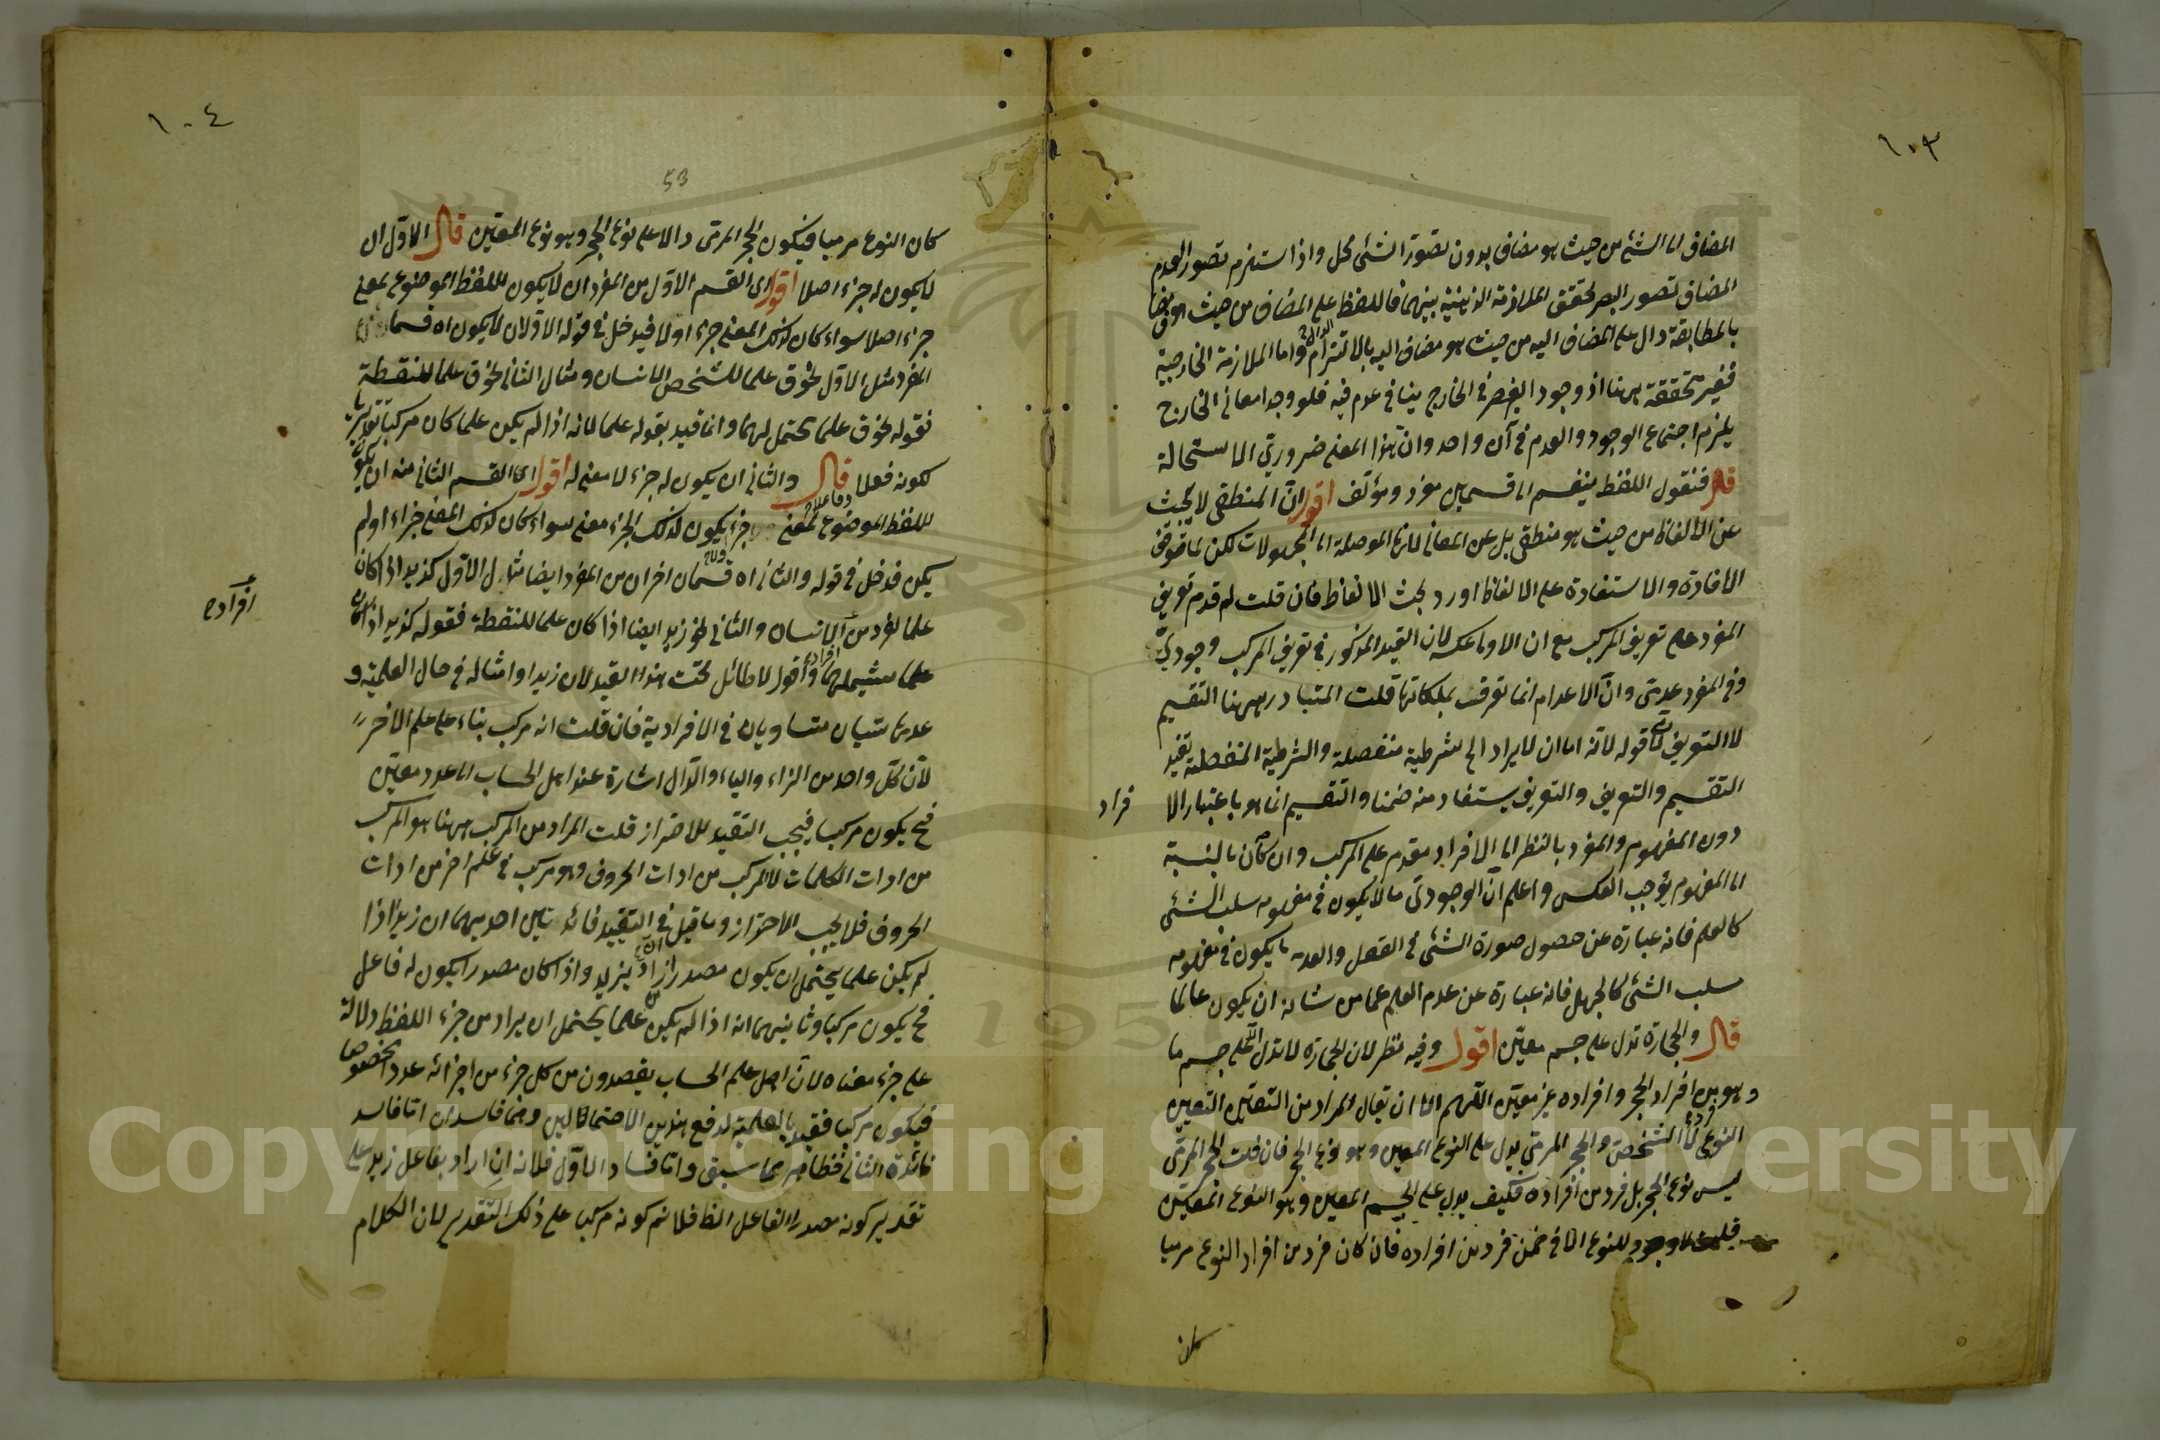 ١٠٣
المضاف الى الشئ من حيث هو مضاف بدون تصور الشئ محل واذا استلزم تصور العدم
المضاف تصور البصر تحقق الملازمة الذهنية بينهما فاللفظ على المضاف من حيث هو مضاف
بالمطابقة دال على المضاف اليه من حيث هو مضاف اليه بالالتزام واما الملازمة الخارجية
فغير تحققة ههنا اذ وجود البصر في الخارج ينافي عدم فيه فلو وجد امعا في الخارج
يلزم اجتماع الوجود والعدم في آن واحد وان هذا المعنى ضروري الاستحالة
قال فنقول اللفظ ينقسم الى قسمين مفرد ومؤلف اقول ان المنطقى لا يبحث
عن الالفاظ من حيث هو منطقى بل عن المعانى لانها الموصلة الى المجهولات لكن لما توقف
الافادة والاستفادة على الالفاظ اورد بحث الالفاظ فان قلت لم قدم تعريف
المفرد على تعريف المركب مع ان الاولى عكسه لان القيد المذكور في تعريف المركب وجودي
وفي المفرد عدمى وان الاعدام انما تعرف بملكاتها قلت المتبادر ههنا التقسيم
لا التعريف لان قوله لانه اما ان لا يراد الخ شرطية منفصلة والشرطية المنفصلة تفيد
التقسيم والتعريف والتعريف يستفاد منه ضمنا والتقسيم انما هو باعتبار الا
فراد
دون المفهوم والمفرد بالنظر الى الافراد مقدم على المركب وان كان بالنسبة
الى المفهوم يوجب العكس واعلم ان الوجودى ما لا يكون في مفهومه سلب الشئ
كالعلم فانه عبارة عن حصول صورة الشئ في العقل والعدمى ما يكون في مفهومه
سلب الشئ كالجهل فانه عبارة عن عدم العلم عما من شانه ان يكون عالما
قال والحجارة تدل على جسم معين اقول وفيه نظر لان الحجارة لا تدل الا على جسم ما
وهو من افراد الحجر وافراده غير معين اللهم الا ان يقال المراد من التعين التعيين
النوعى لا الشخصى والحجر المرمى يدل على النوع المعين وهو نوع الحجر فان قلت الحجر المرمى
ليس نوع الحجر بل فرد من افراده فكيف يدل على الجسم المعين وهو النوع المعين
قلت لا وجود للنوع الا في ضمن فرد من افراده فان كان فرد من افراد النوع مرميا
كان
١٠٤
53
كان النوع مرميا فيكون الحجر المرمى دالا على نوع الحجر وهو نوع المعين قال الاول ان
لا يكون له جزء اصلا اقول اى القسم الاول من المفرد ان لا يكون للفظ الموضوع لمعنى
جزء اصلا سواء كان لذلك المعنى جزء او لا فيدخل في قوله الاول ان لا يكون اه قسمان
المفرد مثل الاول نحو ق علما للشخص الانسان ومثال الثانى نحو ق علما للنقطة
فقوله نحو ق علما يحتمل لهما وانما قيد بقوله علما لانه اذا لم يكن علما كان مركبا
لكونه فعلا وفاعلا قال والثانى ان يكون له جزء لا معنى له اقول اى القسم الثانى منه ان يكون
للفظ الموضوع لمعنى جزء يكون لذلك الجزء معنى سواء كان لذلك المعنى جزء او لم
يكن فدخل في قوله والثانى اه قسمان اخران من المفرد ايضا مثال الاول كزيد اذا كان
علما لفرد من الانسان والثانى نحو زيد ايضا اذا كان علما للنقطة فقوله كزيد اذا كان
افراده
علما يشملهما واقول لا طائل تحت هذا القيد لان زيدا وامثاله في حال العلمية و
عدمها سيان متساويان في الافرادية فان قلت انه مركب بناء على علم الاخر
لان كل واحد من الزاء والياء والدال اشارة عند اهل الحساب الى عدد معين
فح يكون مركبا فيجب التقيد للاحتراز قلت المراد من المركب ههنا هو المركب
من ادات الكلمات لا المركب من ادات الحروف وهو مركب في علم اخر من ادات
الحروف فلا يجب الاحتراز وما قيل في التقييد فائدتين احديهما ان زيدا اذا
لم يكن علما يحتمل ان يكون مصدرا زاد يزيد واذا كان مصدرا يكون له فاعل
فح يكون مركبا وثانيهما انه اذا لم يكن علما يحتمل ان يراد من جزء اللفظ دلالة
على جزء معناه لان اهل علم الحساب يقصدون من كل جزء من اجزائه عددا مخصوصا
فيكون مركبا فقيد بالعلمية لدفع هذين الاحتمالين وهما فاسدان اما فاسد
فائدة الثانى فظاهر مما سبق واما فساد الاول فلانه ان اراد بفاعل زيد على
تقدير كونه مصدرا الفاعل الظ فلا نم كونه مركبا على ذلك التقدير لان الكلام